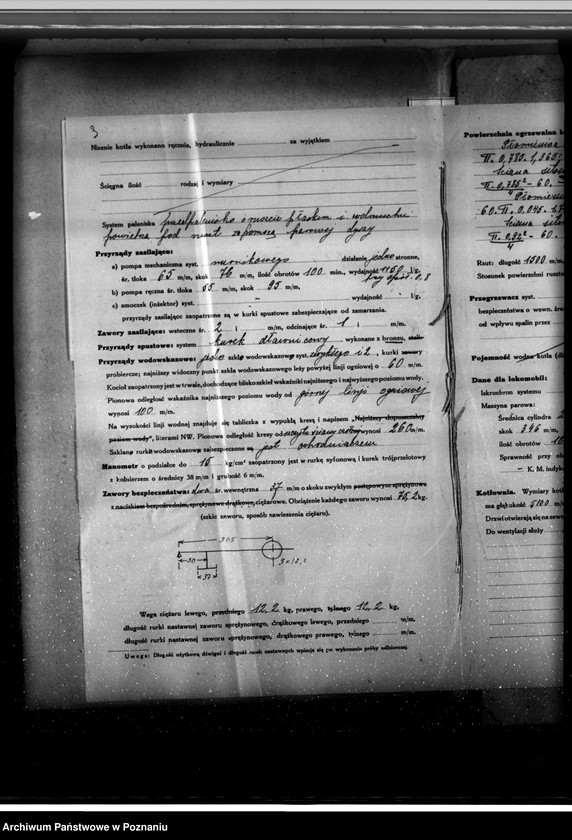 3
Nicenie kotła wykonano ręcznie, hydraulicznie za wyjątkiem
Ścięgna ilość rodzaj i wymiary
System paleniska przedpalenisko o ruszcie płaskim i wdmuchu
powietrza pod ruszt za pomocą parowej dyszy
Przyrządy zasilające:
a) pompa mechaniczna syst. nurnikowego działanie jedno stronne,
śr. tłoka 65 m/m, skok 76 m/m, ilość obrotów 100 min., wydajność 1150 l/g,
przy spół. 0,8
b) pompa ręczna śr. tłoka 55 m/m, skok 95 m/m,
c) smoczek (inżektor) syst. – wydajność l/g,
przyrządy zasilające zaopatrzone są w kurki spustowe zabezpieczające od zamarzania.
Zawory zasilające: wsteczne śr. 2 i m/m, odcinające śr. 1 i m/m.
Przyrządy spustowe: system kurek dławnicowy wykonane z bronzu, stali
Przyrządy wodowskazowe: jedno szkło wodowskazowe syst. zwykłego i 2, kurki zawory
probiercze; najniższy widoczny punkt szkła wodowskazowego leży powyżej linji ogniowej o 60 m/m.
Kocioł zaopatrzony jest w trwałe, dochodzące blisko szkieł wskaźniki najniższego i najwyższego poziomu wody.
Pionowa odległość wskaźnika najniższego poziomu wody od górnej linji ogniowej
wynosi 100 m/m.
Na wysokości linji wodnej znajduje się tabliczka z wypukłą kresą i napisem „Najniższy dopuszczalny
poziom wody", literami NW. Pionowa odległość kresy od wynosi 260 m/m.
Szkła rurki wodowskazowe zabezpieczone są jest ochraniaczem
Manometr o podziałce do 15 kg/cm² zaopatrzony jest w rurkę syfonową i kurek trójprzelotowy
z kołnierzem o średnicy 38 m/m i grubość 6 m/m.
Zawory bezpieczeństwa: dwa śr. wewnętrzna 37 m/m o skoku zwykłym postępowym sprężynowe
z naciskiem bezpośrednim, sprężynowe drążkowe, ciężarowe. Obciążenie każdego zaworu wynosi 75,2 kg.
(szkic zaworu, sposób zawieszenia ciężaru).
305
30
37
Waga ciężaru lewego, przedniego 12,2 kg, prawego, tylnego 12,2 kg,
długość rurki nastawnej zaworu sprężynowego, drążkowego lewego, przedniego m/m.
długość rurki nastawnej zaworu sprężynowego, drążkowego prawego, tylnego m/m.
Uwaga: Długość użytkową dźwigni i długość rurek nastawnych wpisuje się po wykonaniu próby odbiorczej.
Powierzchnia ogrzewalna k
Płomienica
II. 0,780. 1,365
ściana sitow
II. 0,785² - 60.
Płomie
60. II. 0,045.
ściana sito
II. 0,92² - 60.
4
Rzut: długość 1500 m/m,
Stosunek powierzchni ruszt
Przegrzewacz syst.
bezpieczeństwa o wewn. śre
od wpływu spalin przez
Pojemność wodna kotła (dl
Dane dla lokomobil:
Iskrochron systemu
Maszyna parowa:
Średnica cylindra
skok 346 m/m,
ilość obrotów
Sprawność przy ob
— K. M. indyk
Kotłownia. Wymiary kotło
ma głębokość 5100 m/
Drzwi otwierają się na zewn
Do wentylacji służy
Archiwum Państwowe w Poznaniu